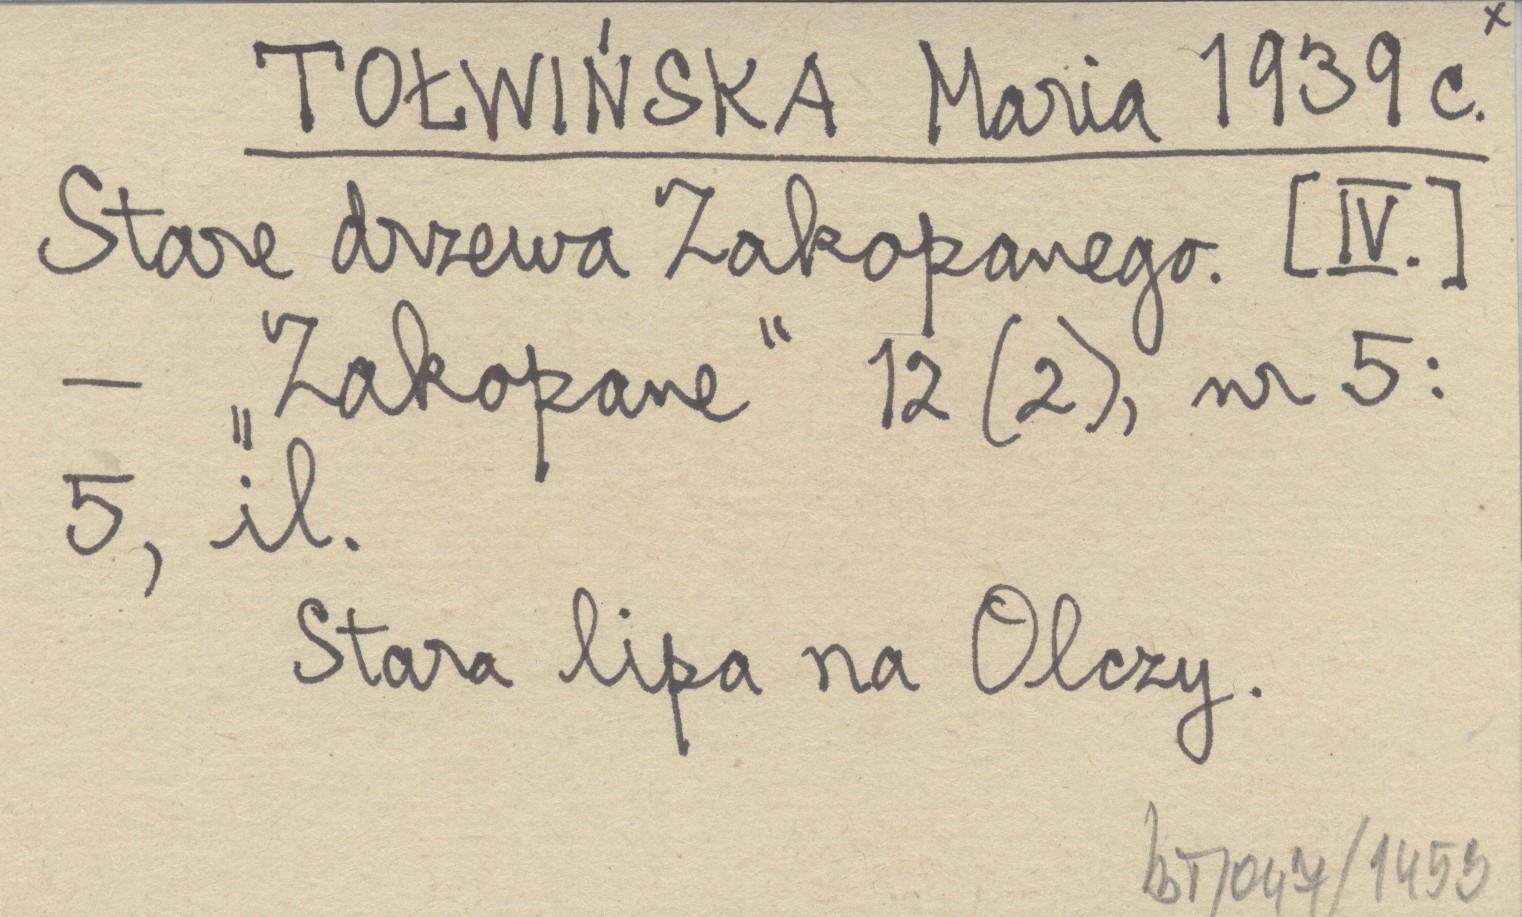 TOŁWIŃSKA Maria 1939 c. x
Stare drzewa Zakopanego. [IV.]
— „Zakopane" 12 (2), nr 5:
5, il.
Stara lipa na Olczy.
bT/047/1453